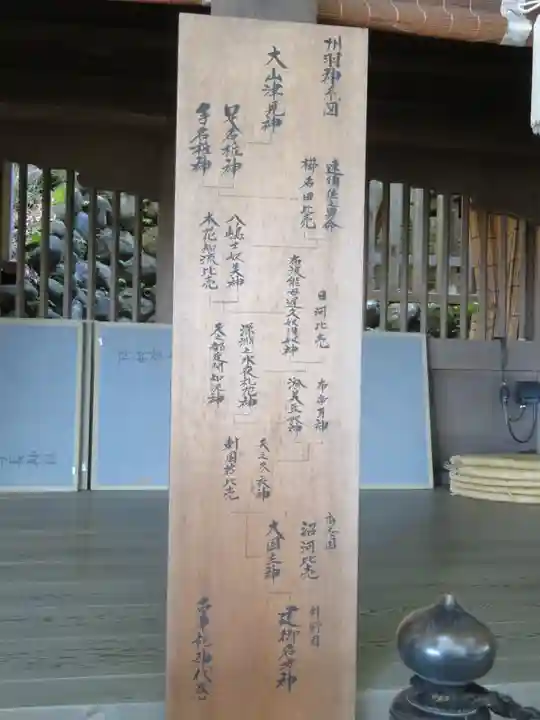 州羽神系図
大山津見神
足名椎神
手名椎神
速須佐之男命
櫛名田比売
八嶋士奴美神
木花知流比売
布波能母遅久奴須奴神
日河比売
深淵之水夜礼花神
天之都度閇知泥神
淤美豆奴神
布帝耳神
天之冬衣神
刺国若比売
大国主神
沼河比売
建御名方神